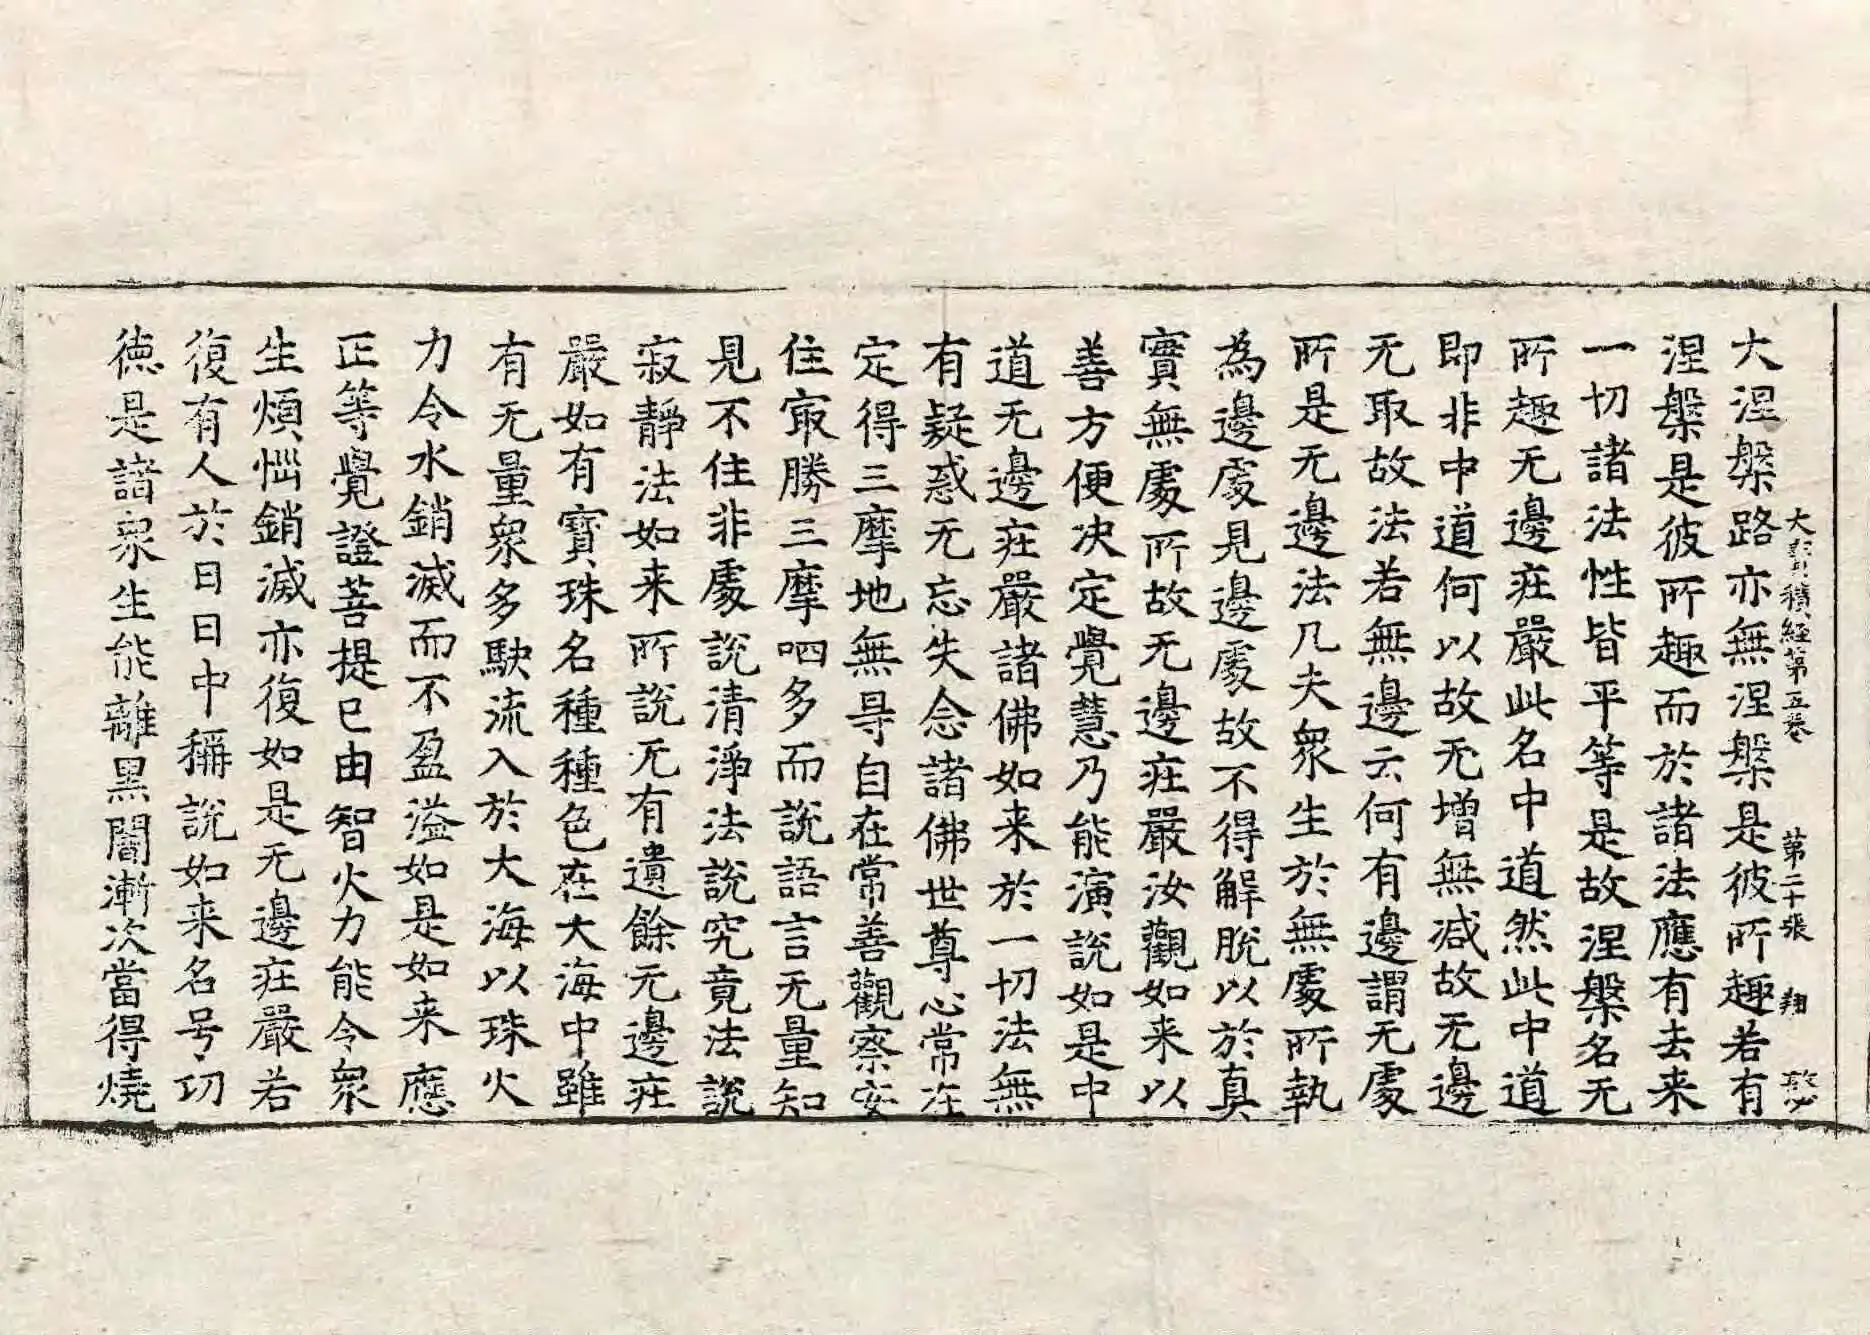 大寶積經第五卷 第二十張 翔
大涅槃路亦無涅槃是彼所趣若有
涅槃是彼所趣而於諸法應有去来
一切諸法性皆平等是故涅槃名无
所趣无邊㽵嚴此名中道然此中道
即非中道何以故无增無减故无邊
无取故法若無邊云何有邊謂无處
所是无邊法凡夫衆生於無處所執
為邊處見邊處故不得解脫以於真
實無處所故无邊㽵嚴汝觀如来以
善方便决定覺慧乃能演說如是中
道无邊㽵嚴諸佛如来於一切法無
有疑惑无忘失念諸佛世尊心常在
定得三摩地無㝵自在常善觀察安
住㝡勝三摩呬多而說語言无量知
見不住非處說清淨法說究竟法說
寂靜法如来所說无有遺餘无邊㽵
嚴如有寶珠名種種色在大海中雖
有无量衆多駃流入於大海以珠火
力令水銷滅而不盈溢如是如来應
正等覺證菩提已由智火力能令衆
生煩惱銷滅亦復如是无邊㽵嚴若
復有人於日日中稱說如来名号功
德是諸衆生能離黑闇漸次當得燒